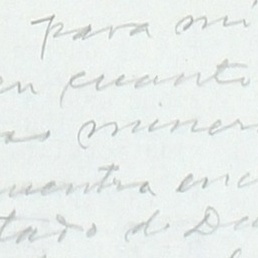 para mi
en cuanto
as miner
cuentra en
tado de Du